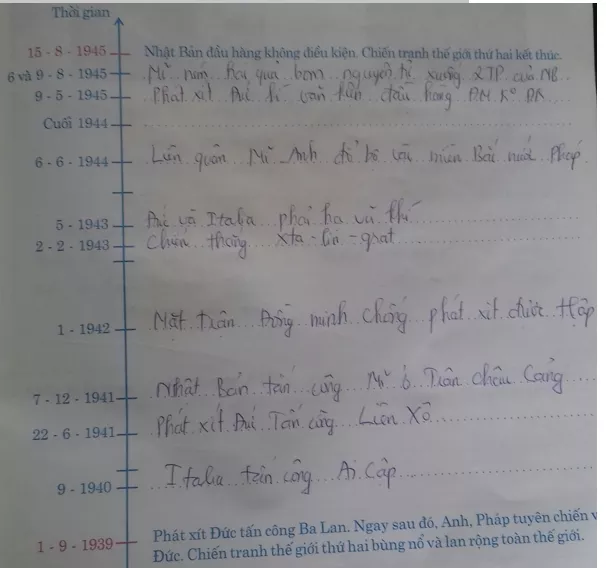 Thời gian
15 - 8 - 1945 Nhật Bản đầu hàng không điều kiện. Chiến tranh thế giới thứ hai kết thúc.
6 và 9 - 8 - 1945 Mĩ ném hai quả bom nguyên tử xuống 2TP của NB
9 - 5 - 1945 Phát xít Đức kí văn kiện đầu hàng ĐM Kº ĐK
Cuối 1944
6 - 6 - 1944 Liên quân Mĩ - Anh đổ bộ vào miền Bắc nước Pháp
5 - 1943 Đức và Italia phải hạ vũ khí
2 - 2 - 1943 Chiến thắng Xta - lin - grat
1 - 1942 Mặt trận Đồng minh chống phát xít được
7 - 12 - 1941 Nhật Bản tấn công Mĩ ở Trân Châu Cảng
22 - 6 - 1941 Phát xít Đức Tấn công Liên Xô
9 - 1940 Italia tấn công Ai Cập
1 - 9 - 1939 Phát xít Đức tấn công Ba Lan. Ngay sau đó, Anh, Pháp tuyên chiến
Đức. Chiến tranh thế giới thứ hai bùng nổ và lan rộng toàn thế giới.